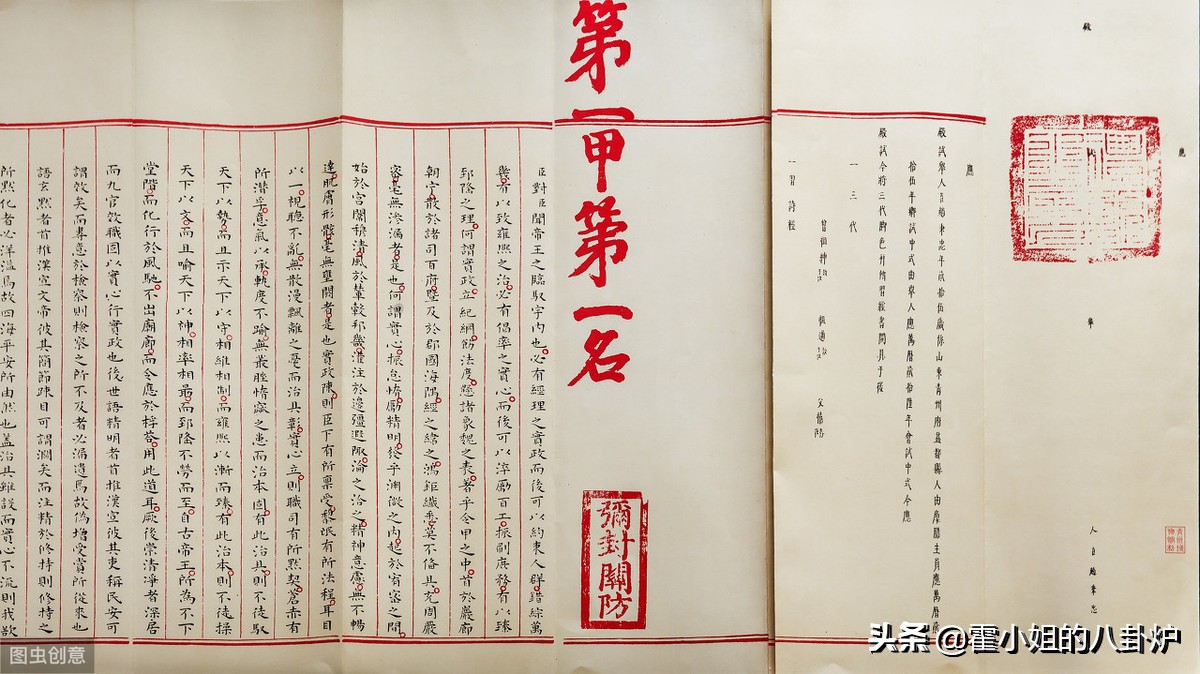 殿
應
舉
應
殿試舉人臣趙秉忠年貳拾伍歲係山東青州府益都縣人由廩膳生員應萬曆貳
拾伍年鄉試中式由舉人應萬曆貳拾陸年會試中式今應
殿試今將三代腳色并所習經書開具于後
一三代
曾祖 祖 父僖
一習詩經
第一甲第一名
彌封關防
臣對臣聞帝王之臨馭宇內也必有經理之實政而後可以約束人群錯綜萬
幾有以致雍熙之治必有倡率之實心而後可以淬勵百工振刷庶務有以臻
郅隆之理何謂實政立紀綱飭法度懸諸象魏之表著乎令甲之中首於巖廊
朝宁散於諸司百府暨及於郡國海隅經之緯之鴻鉅纖悉莫不備具充周嚴
密毫無滲漏者是也何謂實心振怠惰勵精明發乎淵微之內起於宥密之間
始於宮闈穆清風於輦轂邦畿灌注於邊疆遐陬淪之洽之精神意慮無不暢
達肌膚形骸毫無壅閼者是也實政陳則臣下有所稟受黎氓有所法程耳目
以一視聽不亂無散漫飄離之憂而治具彰實心立則職司有所默契蒼赤有
所潛孚意氣以承軌度不踰無叢脞惰窳之患而治本固有此治具則不徒馭
天下以勢而且示天下以守相維相制而雍熙以漸而臻有此治本則不徒操
天下以文而且喻天下以神相率相勗而郅隆不勞而至自古帝王所為不下
堂階而化行於風馳不出廟廊而令應於桴荅用此道耳厥後崇清淨者深居
而九官效職固以實心行實政也後世語精明者首推漢宣彼其吏稱民安可
謂效矣而專意於檢察則檢察之所不及者必漏遺焉故偽增受賞所從來也
語玄默者首推漢宣文帝彼其簡節疎目可謂闊矣而注精於修持則修持之
所默化者必洋溢焉故四海平安所由然也蓋治具雖設而實心不流則我欲
图虫创意
头条 @霍小姐的八卦炉